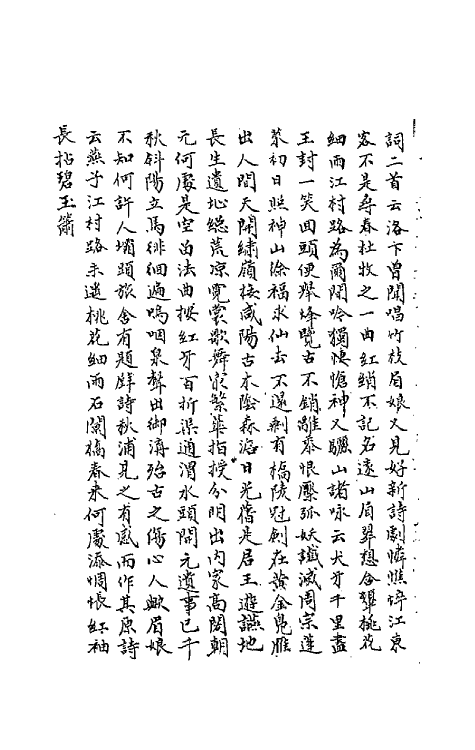 詞二首云洛下曾聞唱竹枝眉娘又見好新詩劇憐憔悴江東
客不是尋春杜牧之一曲紅綃不記名遠山眉翠想含顰桃花
細雨江村路為爾閒吟獨愴神又驪山諸咏云犬牙千里盡
王封一笑回頭便舉烽覽古不銷離黍恨檿弧妖讖滅周宗蓬
萊初日照神山徐福求仙去不還剩有橋陵冠劍在黃金鳧雁
出人間天開繡嶺接咸陽古木陰森浴日光舊是君王遊讌地
長生遺地總荒凉霓裳歌舞最繁華指授分明出內家高閣朝
元何處是空留法曲按紅牙百折渠通渭水頭開元遺事已千
秋斜陽立馬徘徊遍嗚咽泉聲出御溝殆古之傷心人歟眉娘
不知何許人壩頭旅舍有題壁詩秋浦見之有感而作其原詩
云燕子江村路未遙桃花細雨石闌橋春來何處添惆悵紅袖
長拈碧玉簫